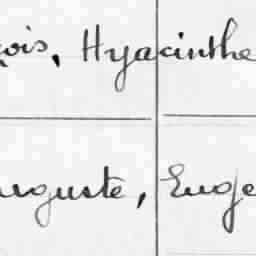 çois, Hyacinthe
uguste, Euge